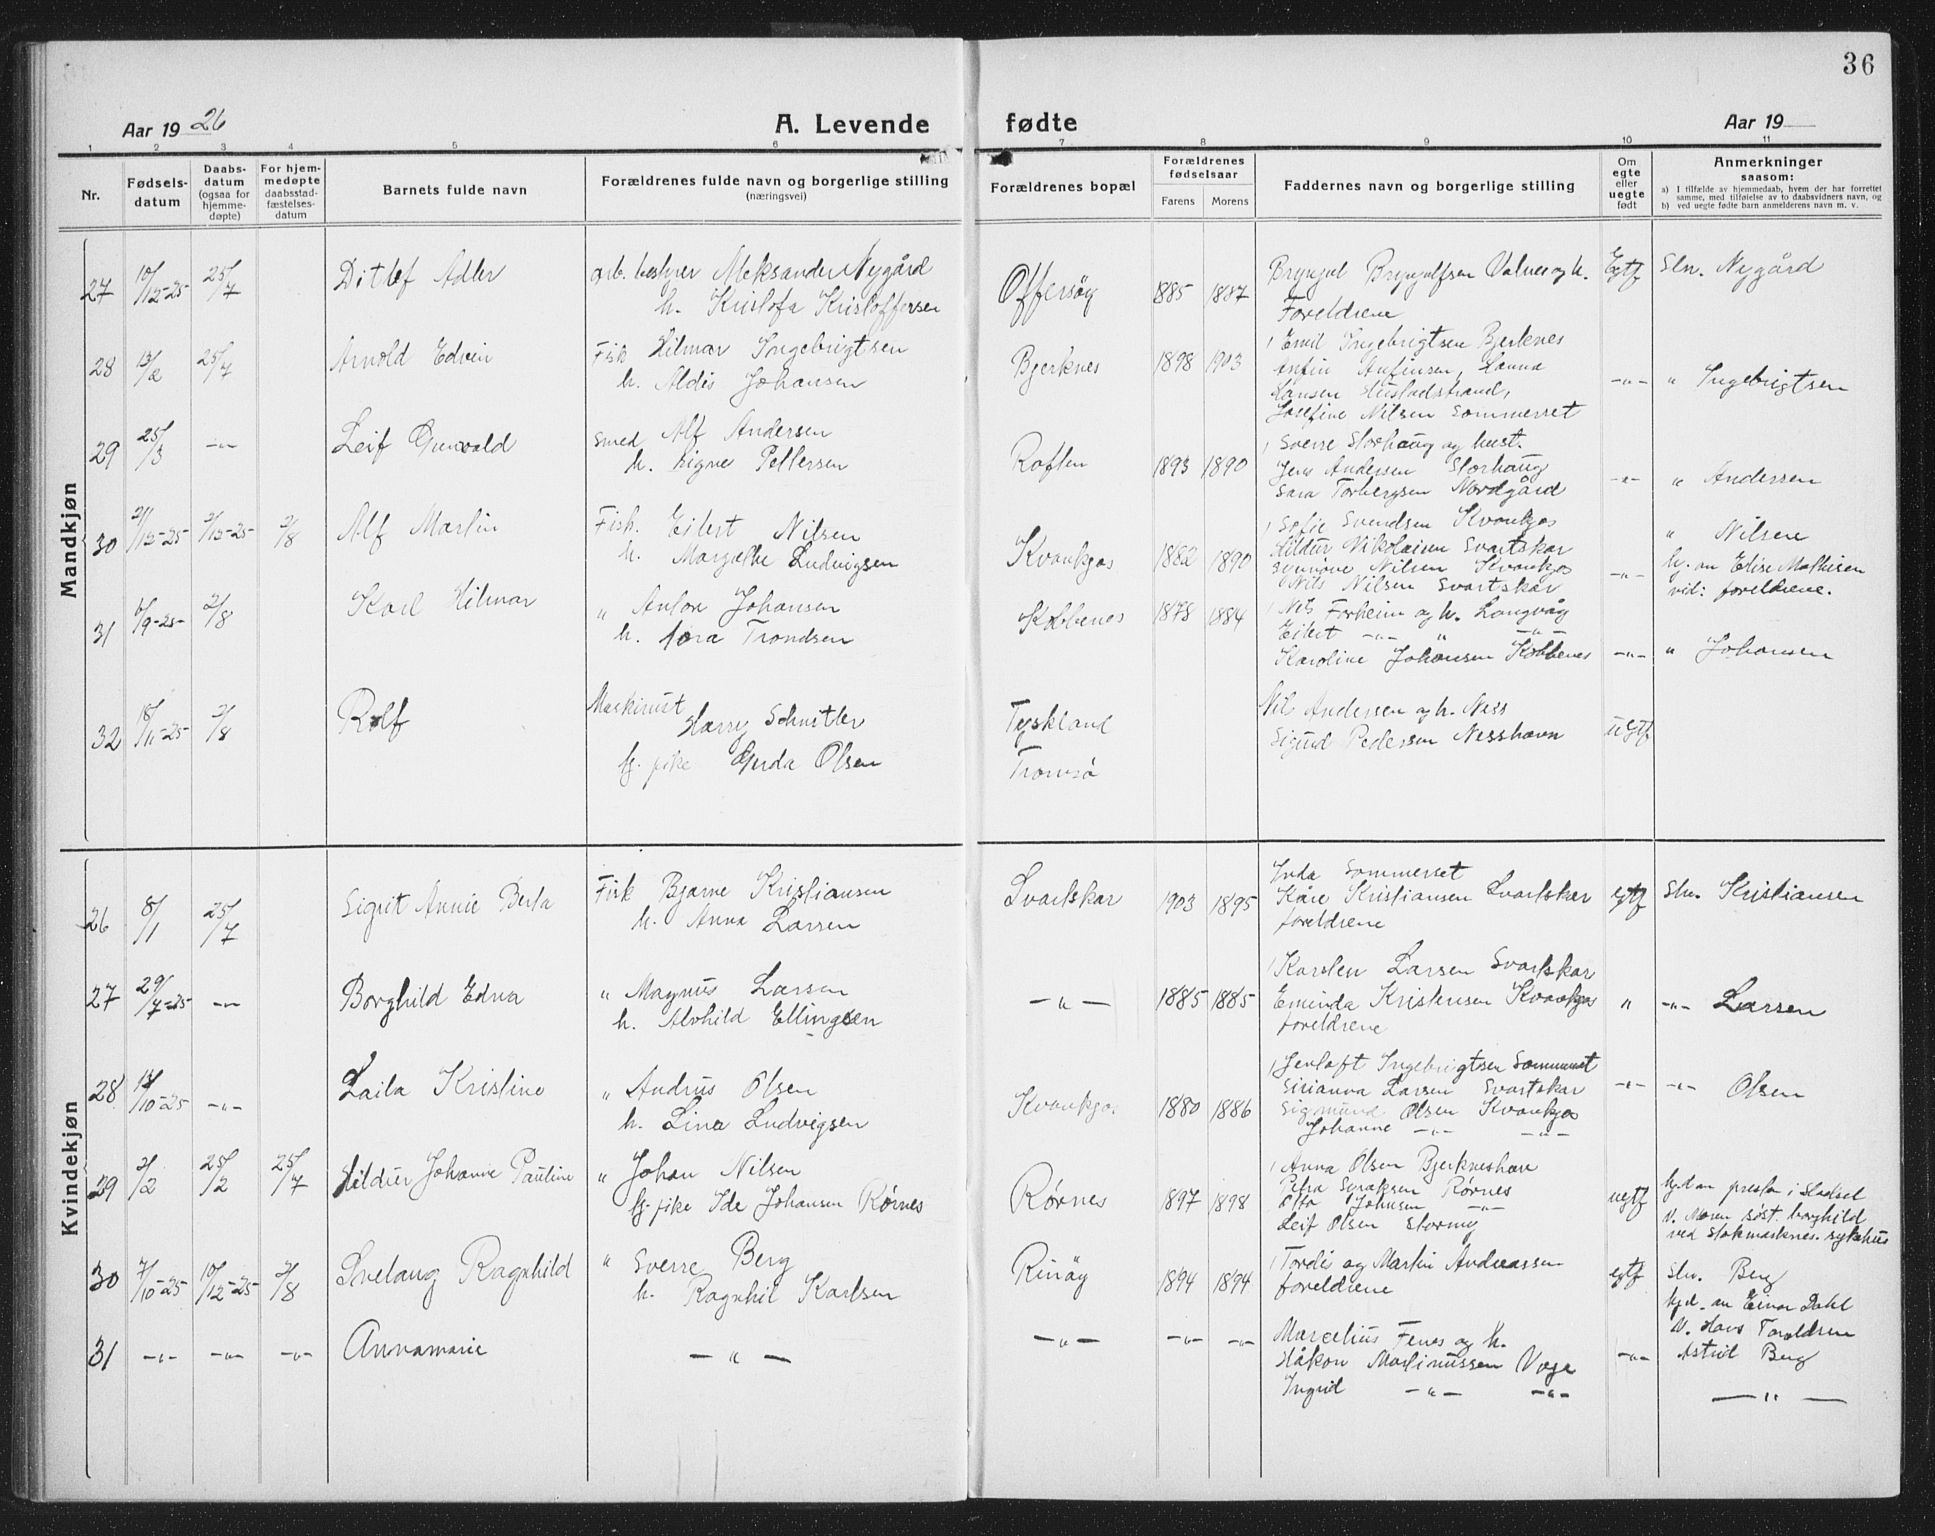 36
Aar 1926 A. Levende fødte Aar 19
1 2 3 4 5 6 7 8 9 10 11
Nr. Fødsels-datum Daabs-datum (ogsaa for hjemme-døpte) For hjem-medøpte daabsstad-fæstelses-datum Barnets fulde navn Forældrenes fulde navn og borgerlige stilling (næringsvei) Forældrenes bopæl Forældrenes fødselsaar Farens Morens Faddernes navn og borgerlige stilling Om egte eller uegte født Anmerkninger saasom:
a) I tilfælde av hjemmedaab, hvem der har forrettet samme, med tilføielse av to daabsvidners navn, og
b) ved uegte fødte barn anmelderens navn m. v.
Mandkjøn
27 10/12-25 25/7 Ditlef Adler arb. bestyrer Aleksander Nygård Offersøy 1885 1887 Brynjul Brynjulfsen Valnes og h. Egtf Sln. Nygård
h. Kristofa Kristoffersen Foreldrene
28 13/2 25/7 Arnold Edvin Fisk Hilmar Ingebrigtsen Bjerknes 1898 1903 Emil Ingebrigtsen Bjerknes -"- " Ingebrigtsen
h. Aldis Johansen Anfin Anfinsen, Hanna
Hansen Hustadstrand,
Josefine Nilsen Sommerset
29 25/3 -"- Leif Grunvald smed Alf Andersen Roften 1893 1890 Sverre Storhaug og hust. -"- " Andersen
h. Signe Pettersen Jens Andersen Storhaug
Sara Torbergsen Nordgård
30 2/12-25 2/12-25 2/8 Alf Martin Fisk. Eilert Nilsen Kvankjos 1882 1890 Sofie Svendsen Kvankjos -"- " Nilsen
h. Margrethe Ludvigsen Hildur Nikolaisen Svartskar hj. av Elise Mathisen
Synnøve Nilsen Kvankjos vid: foreldrene.
Nils Nilsen Svartskar
31 6/9-25- 2/8 Karl Hilmar " Anton Johansen Kobbenes 1878 1884 Nels Forheim og h. Langvåg
h. Nora Trondsen Eilert -"- " -"-
Karoline Johansen Kobbenes -"- " Johansen
32 18/11-25 2/8 Rolf Maskinist Harry Schnitler Tyskland Nils Andersen og h. Ness uegtf
Sigurd Pedersen Nesshavn
ug. pike Gerda Olsen Tromsø
Kvindekjøn
26 8/1 25/7 Sigrit Annie Berta Fisk Bjarne Kristiansen Svartskar 1903 1895 Inda Sommerset egtf Sln. Kristiansen
h. Anna Larsen Kåre Kristiansen Svartskar
foreldrene
27 29/7-25 -"- Borghild Edna " Magnus Larsen -"- 1885 1885 Karsten Larsen Svartskar " -"- Larsen
h. Alvhild Ellingsen Eminda Kristensen Kvankjos
foreldrene
28 18/10-25 -"- Laila Kristine " Andrus Olsen Kvankjos 1880 1886 Jentoft Ingebrigtsen Sommerset -"- -"- Olsen
h. Lina Ludvigsen Sirianna Larsen Svartskar
Sigmund Olsen Kvankjos
Johanne -"- -"-
29 2/2 25/2 25/7 Hildur Johanne Pauline " Johan Nilsen Rørnes 1897 1898 Anna Olsen Bjerkneshavn uegtf hjd av presten i Hadsel
ug. pike Ide Johansen Rørnes Petra Rørnes v. Moren søst. borghild
Johnsen -"- ved Stokmarknes. sykehus
Leif Olsen Storoy
30 7/10-25 10/12-25 2/8 Svelaug Ragnhild " Sverre Berg Rinøy 1894 1894 Tordis og Martin Andreassen egtf Sln. Berg
h. Ragnhil Karlsen foreldrene hjd. av Einar Dahl
31 -"- -"- -"- Annamarie -"- -"- -"- -"- Marcelius Fenes og h. -"- v. Hans Toraldsen
Håkon Martinussen Vage Astrid Berg
Ingrid -"- -"- -"-